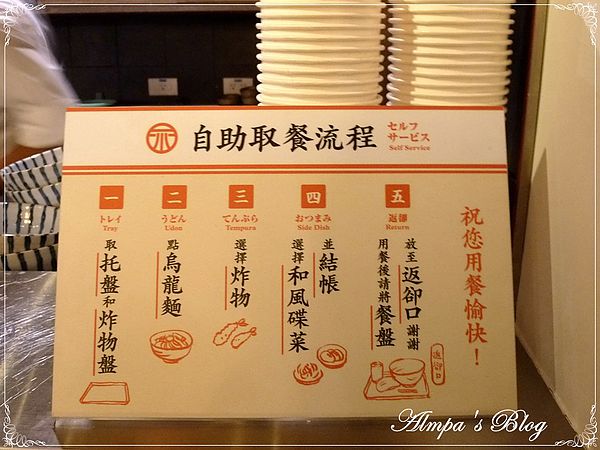 自助取餐流程
セルフ
サービス
Self Service
一
トレイ
Tray
取托盤和炸物盤
二
うどん
Udon
點烏龍麵
三
てんぷら
Tempura
選擇炸物
四
おつまみ
Side Dish
選擇和風碟菜
並結帳
五
返卻
Return
用餐後請將餐盤
放至返卻口謝謝
返卻口
祝您用餐愉快！
Almpa's Blog